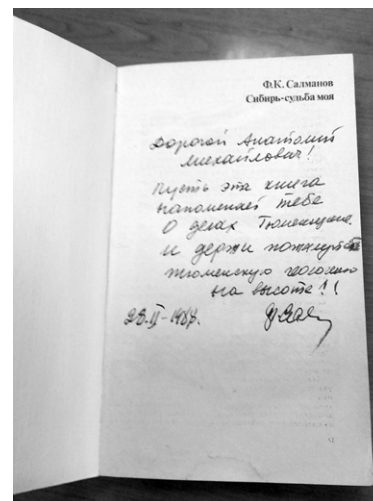 Ф.К. Салманов
Сибирь-судьба моя
Дорогой Анатолий
Михайлович!
Пусть эта книга
напоминает тебе
о делах Тюменщины
и держи пожалуйста
тюменскую геологию
на высоте!!